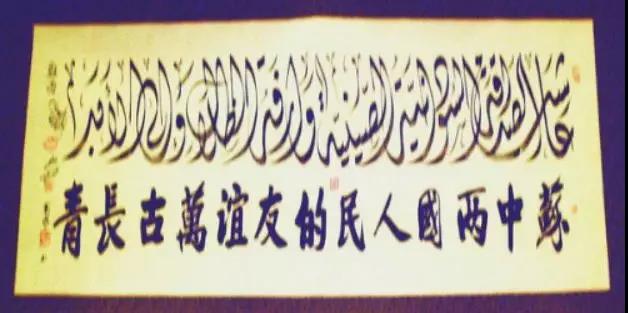 عاشت الصداقة السودانية الصينية وارفة الظلال والى الابد
蘇中两國人民的友誼萬古長青